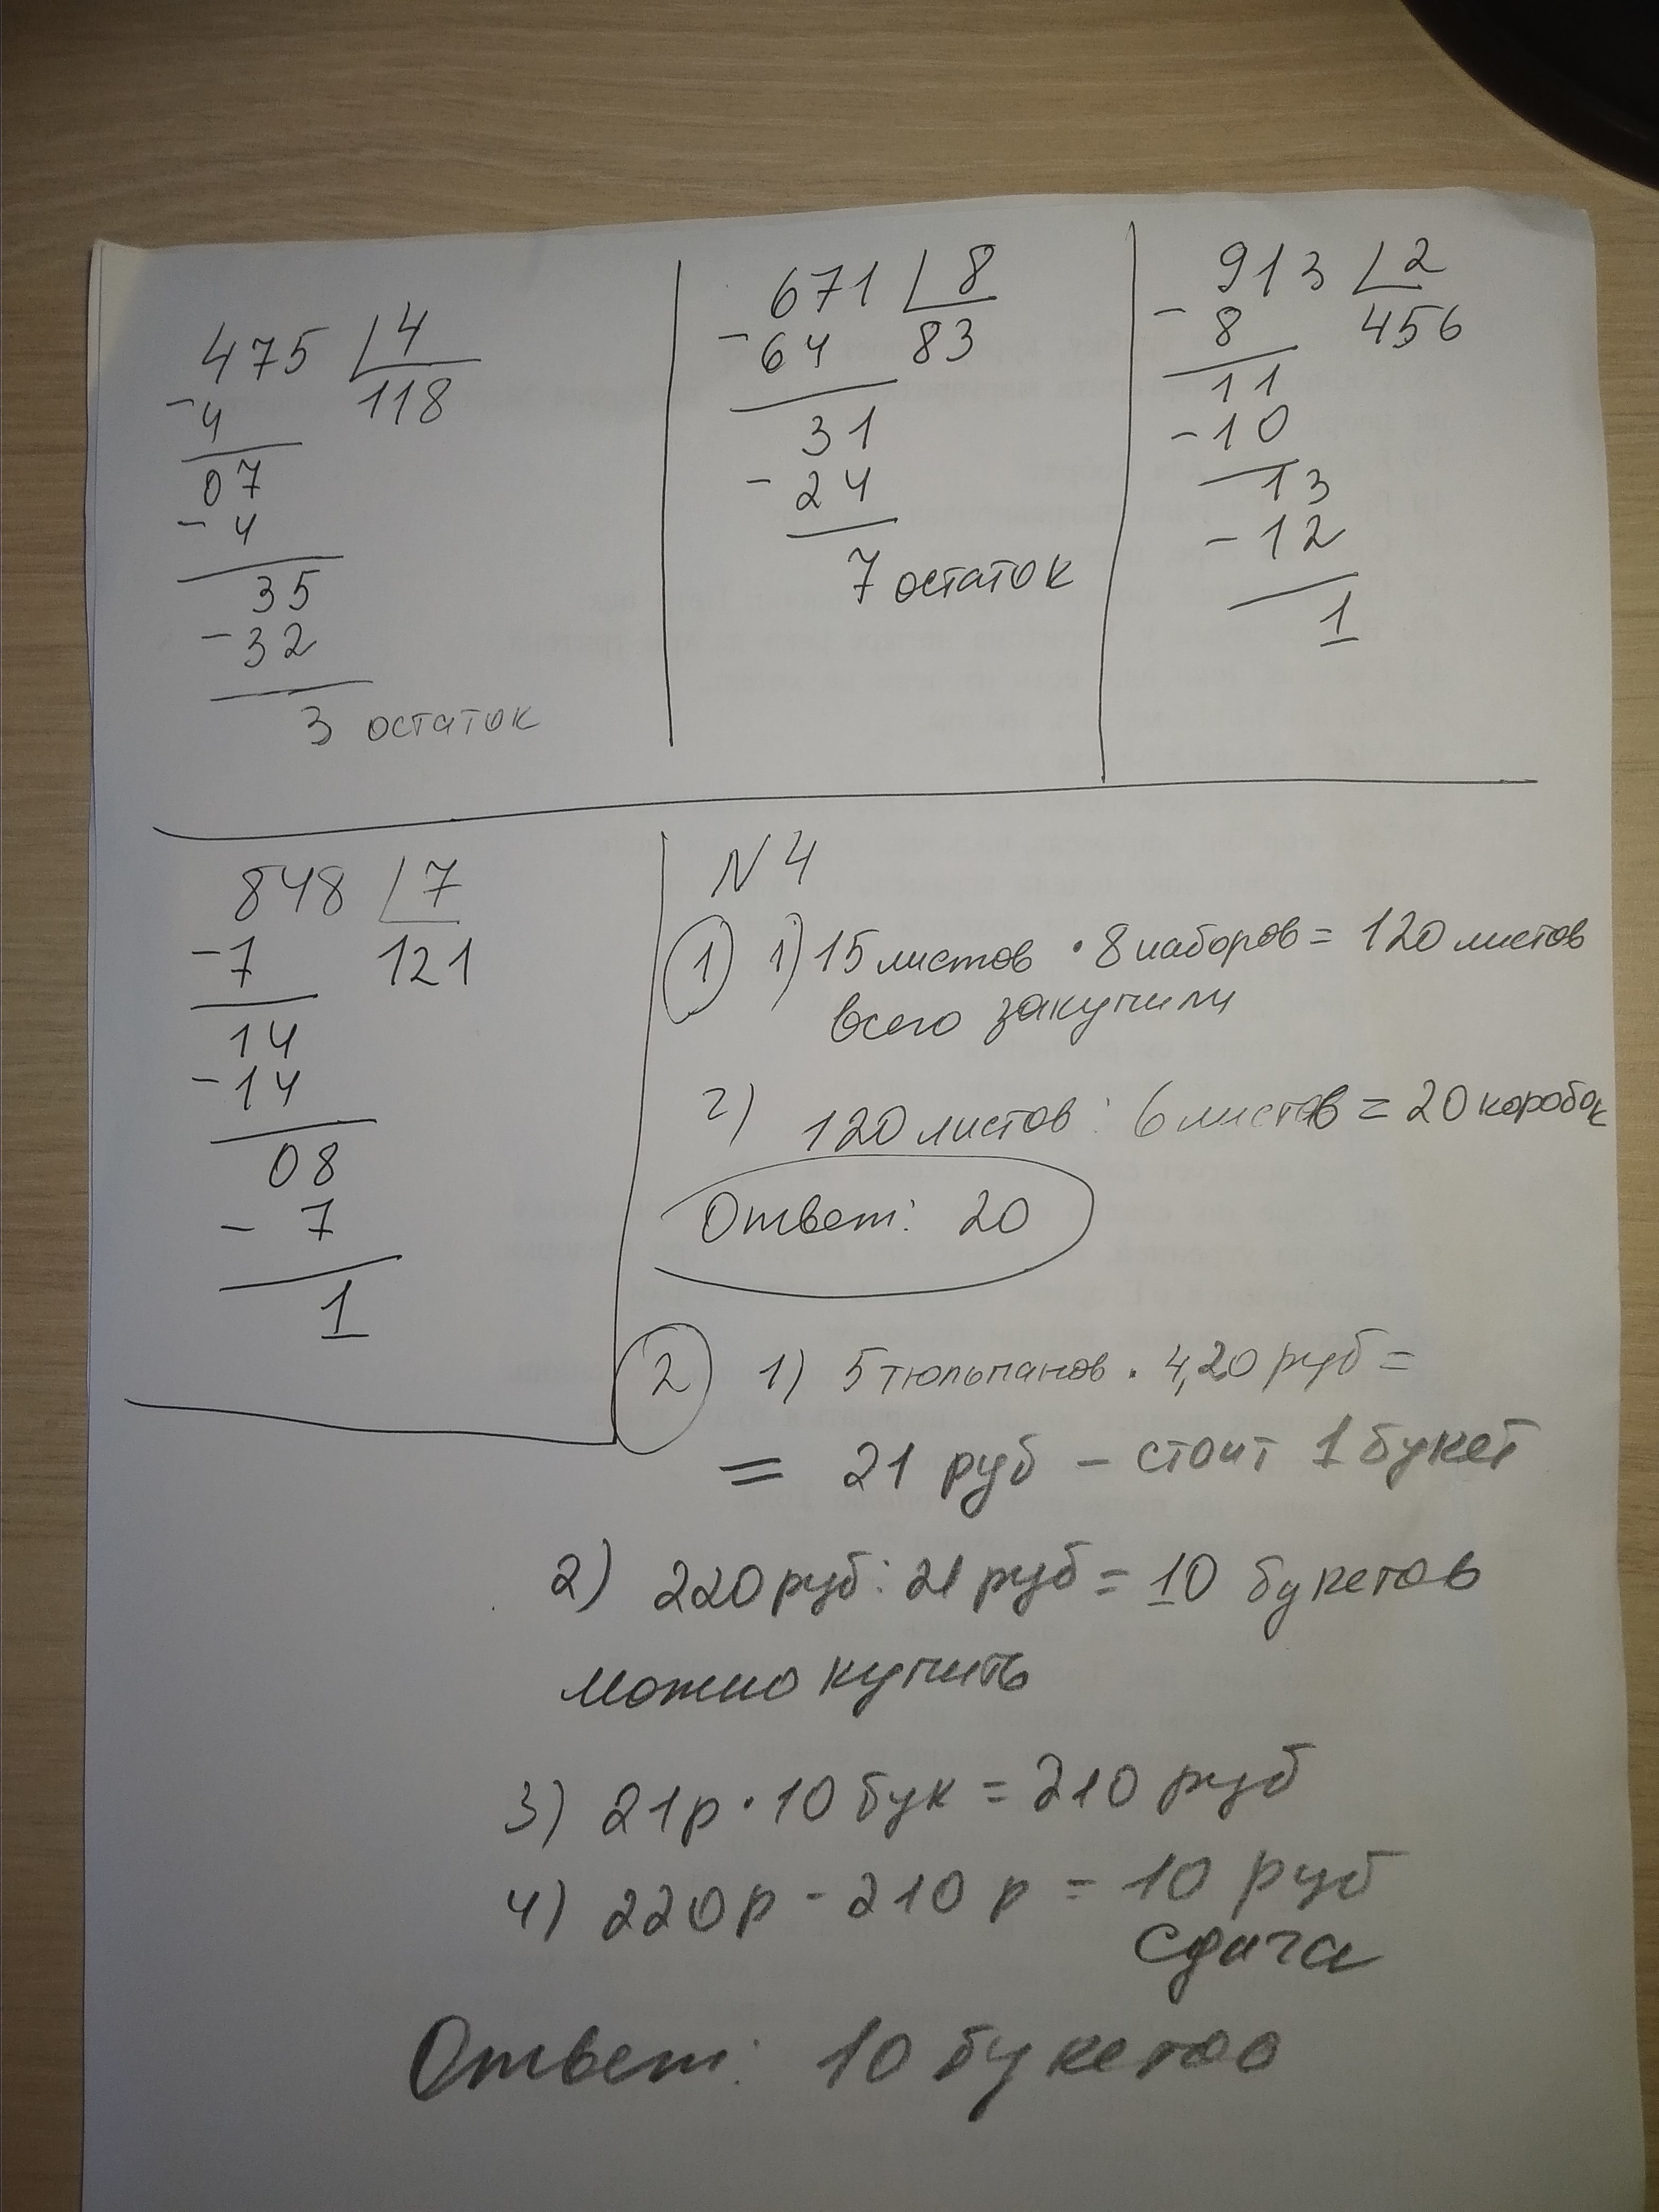 475 4
- 4 118
07
- 4
35
- 32
3 остаток
671 8
- 64 83
31
- 24
7 остаток
913 2
- 8 456
11
- 10
13
- 12
1
848 7
- 7 121
14
- 14
08
- 7
1
N 4
1 1) 15 листов · 8 наборов = 120 листов
всего закупили
2) 120 листов : 6 листов = 20 коробок
Ответ: 20
2 1) 5 тюльпанов · 4,20 руб =
= 21 руб – стоит 1 букет
2) 220 руб : 21 руб = 10 букетов
можно купить
3) 21р · 10 бук = 210 руб
4) 220 р - 210 р = 10 руб
сдача
Ответ: 10 букетов